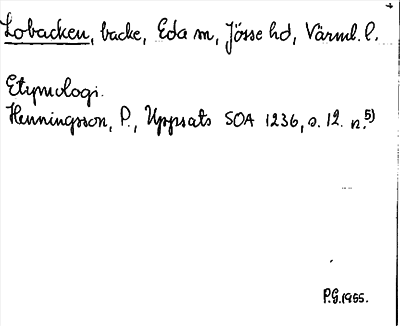 Lobacken, backe, Eda sn, Jösse hd, Värml. l.
Etymologi.
Henningsson, P., Uppsats SOA 1236, s. 12 n. 5)
P.G. 1955.